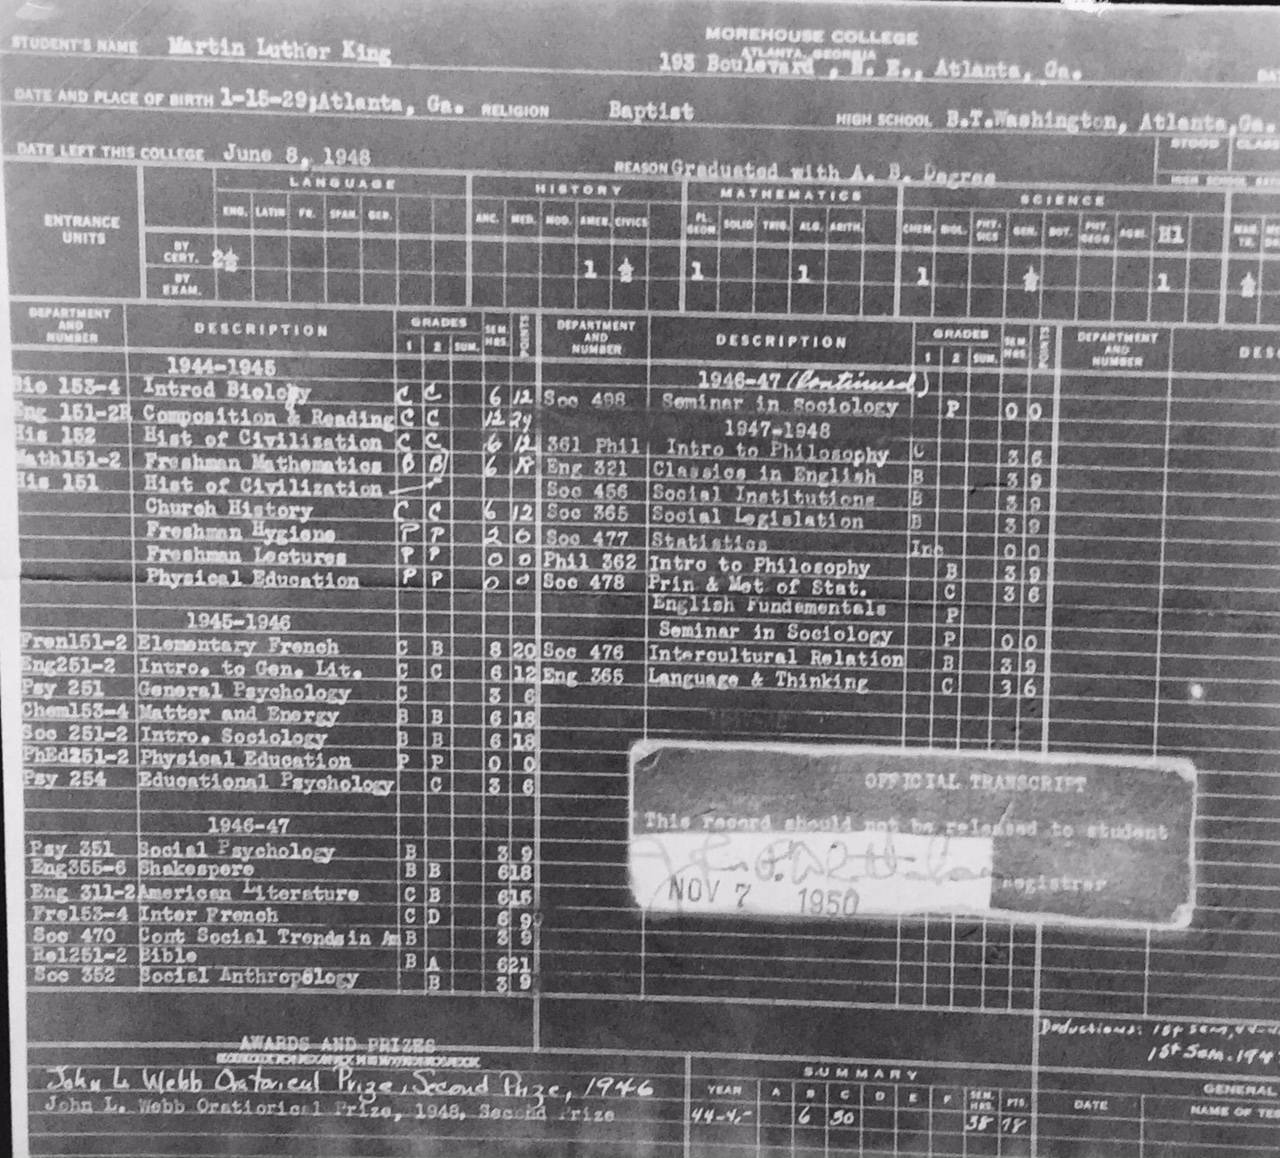 MOREHOUSE COLLEGE
ATLANTA, GEORGIA
STUDENT'S NAME Martin Luther King 193 Boulevard , N. E., Atlanta, Ga.
DATE AND PLACE OF BIRTH 1-15-29;Atlanta, Ga. RELIGION Baptist HIGH SCHOOL B.T.Washington, Atlanta,Ga.
DATE LEFT THIS COLLEGE June 8, 1948 REASON Graduated with A. B. Degree
STOOD CLASS
HIGH SCHOOL
LANGUAGE HISTORY MATHEMATICS SCIENCE
ENTRANCE UNITS
ENG. LATIN FR. SPAN. GER. ANC. MED. MOD. AMER. CIVICS PL. GEOM. SOLID TRIG. ALG. ARITH. CHEM. BIOL. PHYSICS GEN. BOT. PHY. GEOG. AGRI. H1 MAN. TR.
BY CERT. 2½ 1 ½ 1 1 1 ½ 1 ½
BY EXAM.
DEPARTMENT AND NUMBER DESCRIPTION GRADES 1 2 SUM. SEM. HRS. POINTS
1944-1945
Bio 153-4 Introd Biology C C 6 12
Eng 151-2R Composition & Reading C C 12 24
His 152 Hist of Civilization C C 6 12
Math151-2 Freshman Mathematics B 6
His 151 Hist of Civilization
Church History C C 6 12
Freshman Hygiene P P 2 0
Freshman Lectures P P 0 0
Physical Education P P 0 0
1945-1946
Fren151-2 Elementary French C B 8 20
Eng251-2 Intro. to Gen. Lit. C C 6 12
Psy 251 General Psychology C 3 6
Chem153-4 Matter and Energy B B 6 18
Soc 251-2 Intro. Sociology B B 6 18
PhEd251-2 Physical Education P P 0 0
Psy 254 Educational Psychology C 3 6
1946-47
Psy 351 Social Psychology B 3 9
Eng355-6 Shakespere B B 6 18
Eng 311-2 American Literature C B 6 15
Fre153-4 Inter French C D 6 9
Soc 470 Cont Social Trends in Am B 3 9
Rel251-2 Bible B A 6 21
Soc 352 Social Anthropology B 3 9
DEPARTMENT AND NUMBER DESCRIPTION GRADES 1 2 SUM. SEM. HRS. POINTS
1946-47 (Continued)
Soc 498 Seminar in Sociology P 0 0
1947-1948
361 Phil Intro to Philosophy C 3 6
Eng 321 Classics in English B 3 9
Soc 456 Social Institutions B 3 9
Soc 365 Social Legislation B 3 9
Soc 477 Statistics Inc 0 0
Phil 362 Intro to Philosophy B 3 9
Soc 478 Prin & Met of Stat. C 3 6
English Fundamentals P
Seminar in Sociology P 0 0
Soc 476 Intercultural Relation B 3 9
Eng 365 Language & Thinking C 3 6
DEPARTMENT AND NUMBER
OFFICIAL TRANSCRIPT
This record should not be released to student
registrar
NOV 7 1950
Deductions: 1st Sem.
1st Sem.
AWARDS AND PRIZES
John L. Webb Oratorical Prize, Second Prize, 1946
John L. Webb Oratiorical Prize, 1948, Second Prize
SUMMARY
YEAR A B C D E F SEM. HRS. PTS.
6 30 38 78
GENERAL
DATE NAME OF